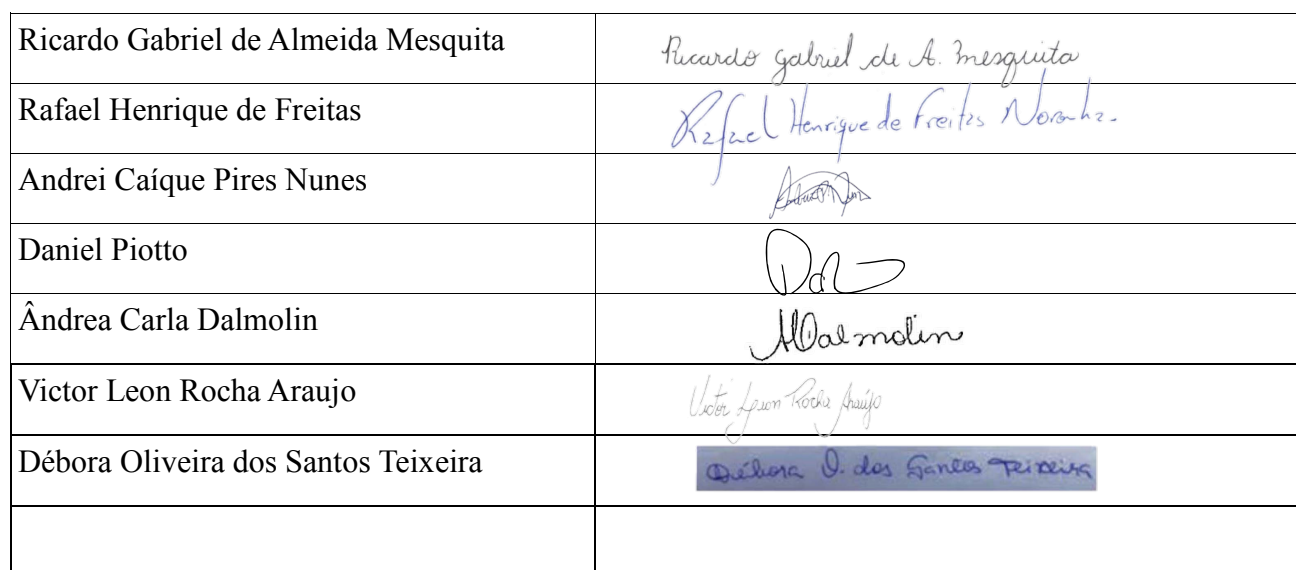 Ricardo Gabriel de Almeida Mesquita
Ricardo gabriel de A. mesquita
Rafael Henrique de Freitas
Rafael Henrique de Freitas Noronha.
Andrei Caíque Pires Nunes
Daniel Piotto
Ândrea Carla Dalmolin
ADalmolin
Victor Leon Rocha Araujo
Victor Leon Rocha Araújo
Débora Oliveira dos Santos Teixeira
Débora O. dos Santos Teixeira